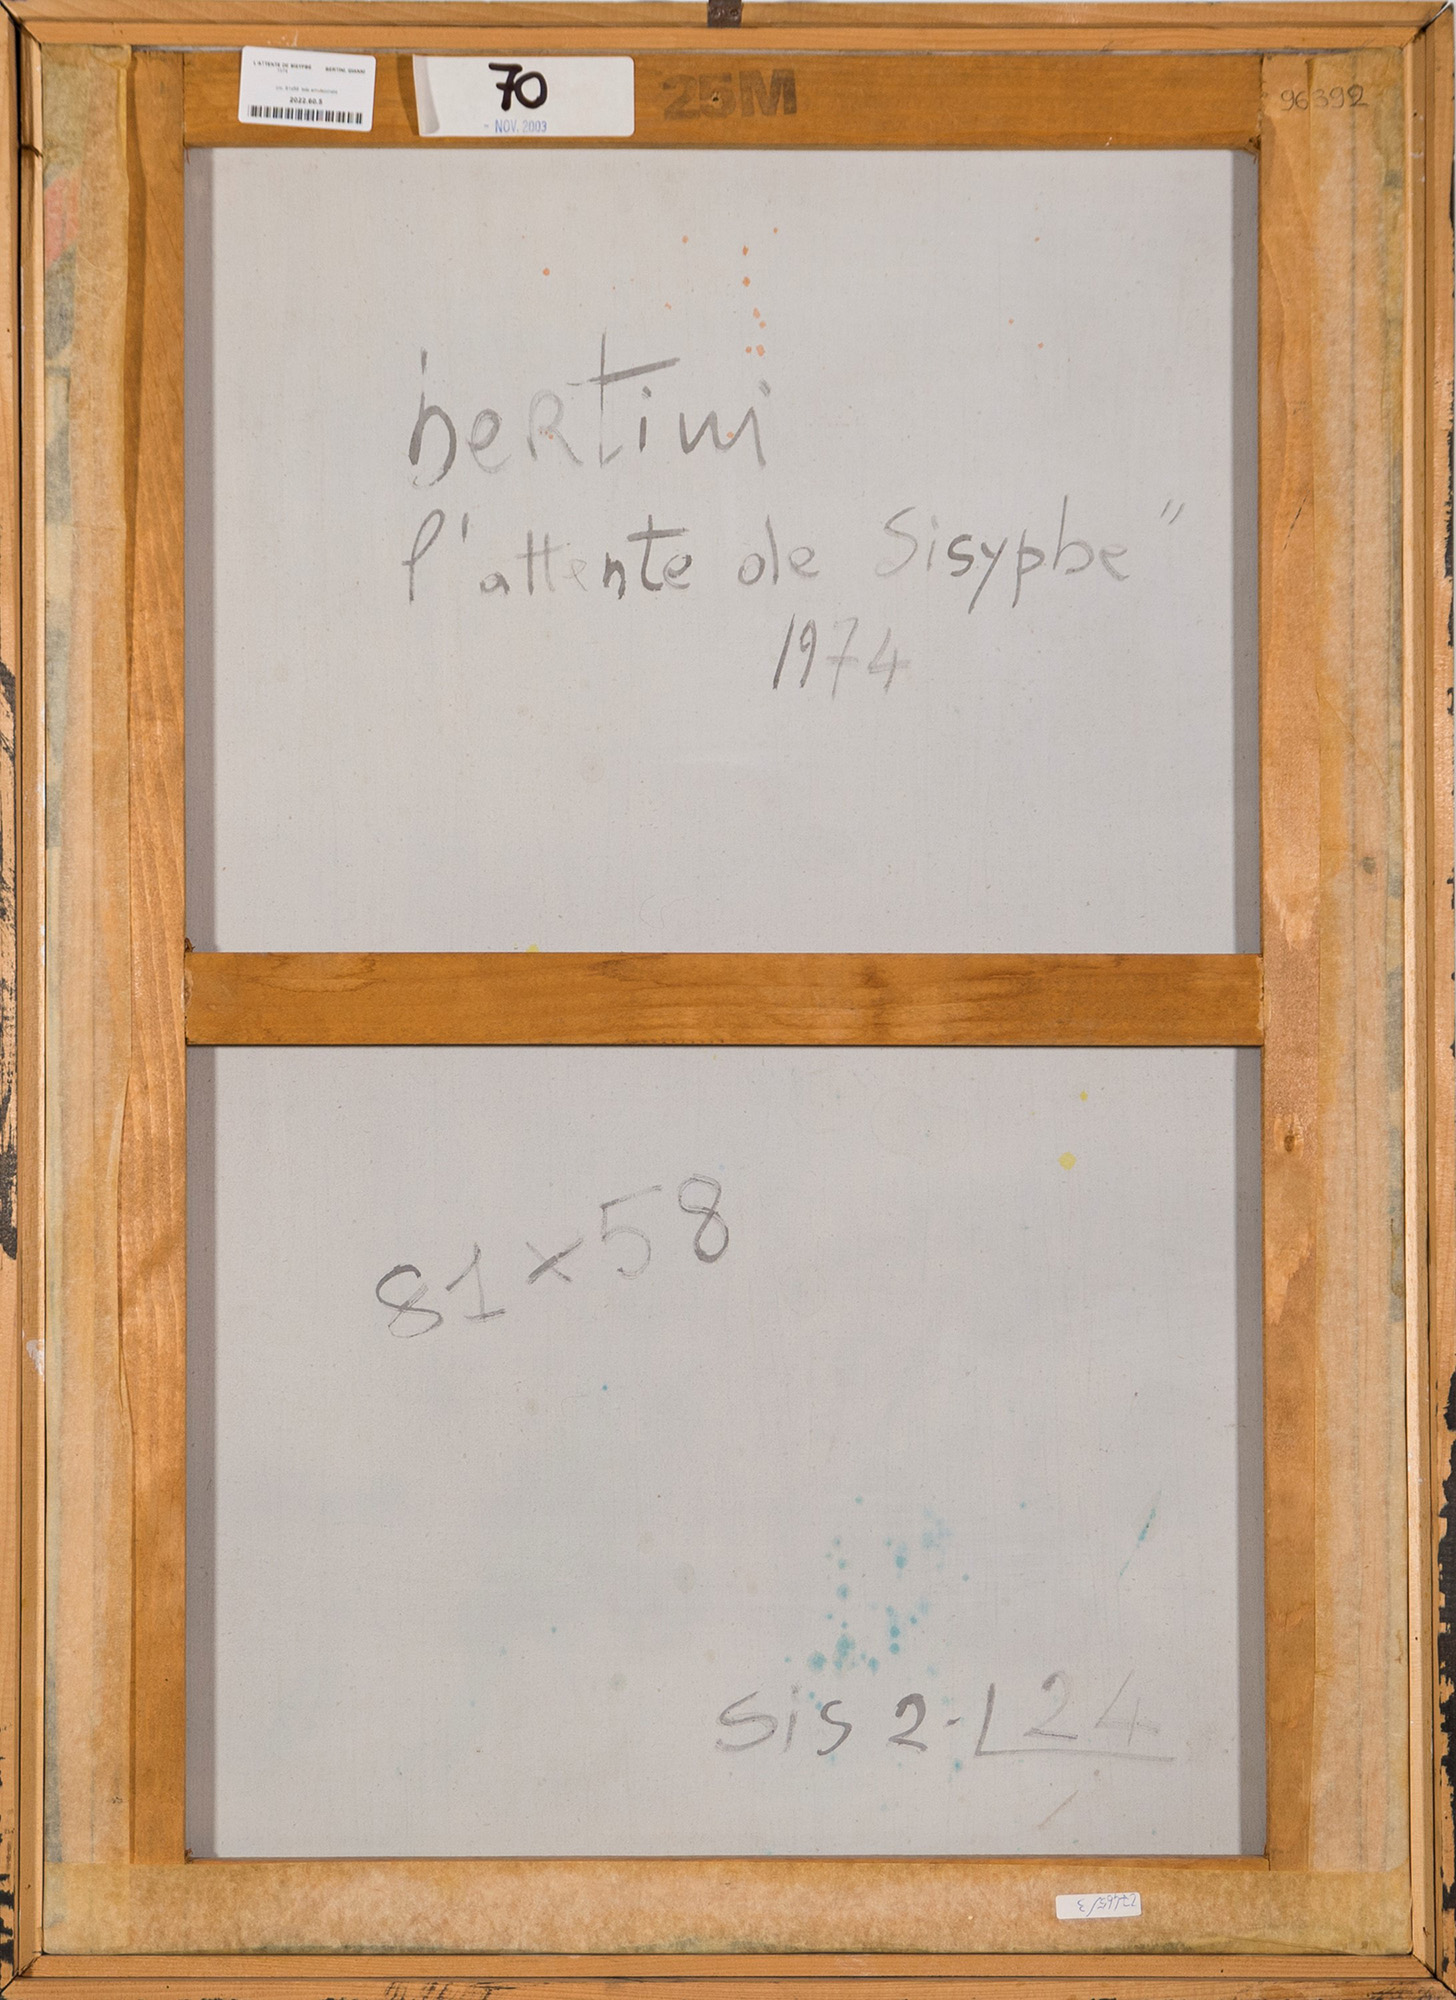 L'ATTENTE DE SISYPHE
2022.60.3
70
- NOV. 2003
25M
96392
bertini
l'attente de Sisyphe"
1974
81x58
sis 2-L24